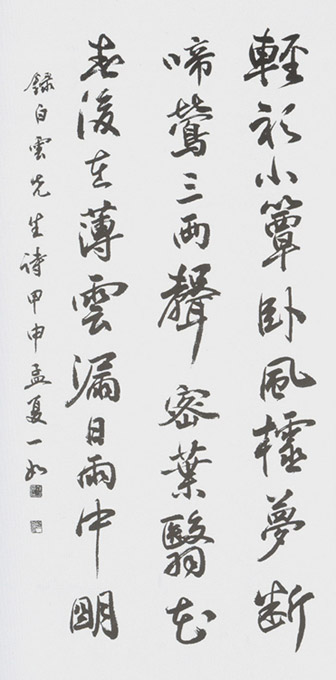 輕衫小簟卧風櫺夢斷
啼鶯三兩聲密葉翳花
春後在薄雲漏日雨中明
錄白雲先生詩甲申孟夏一如